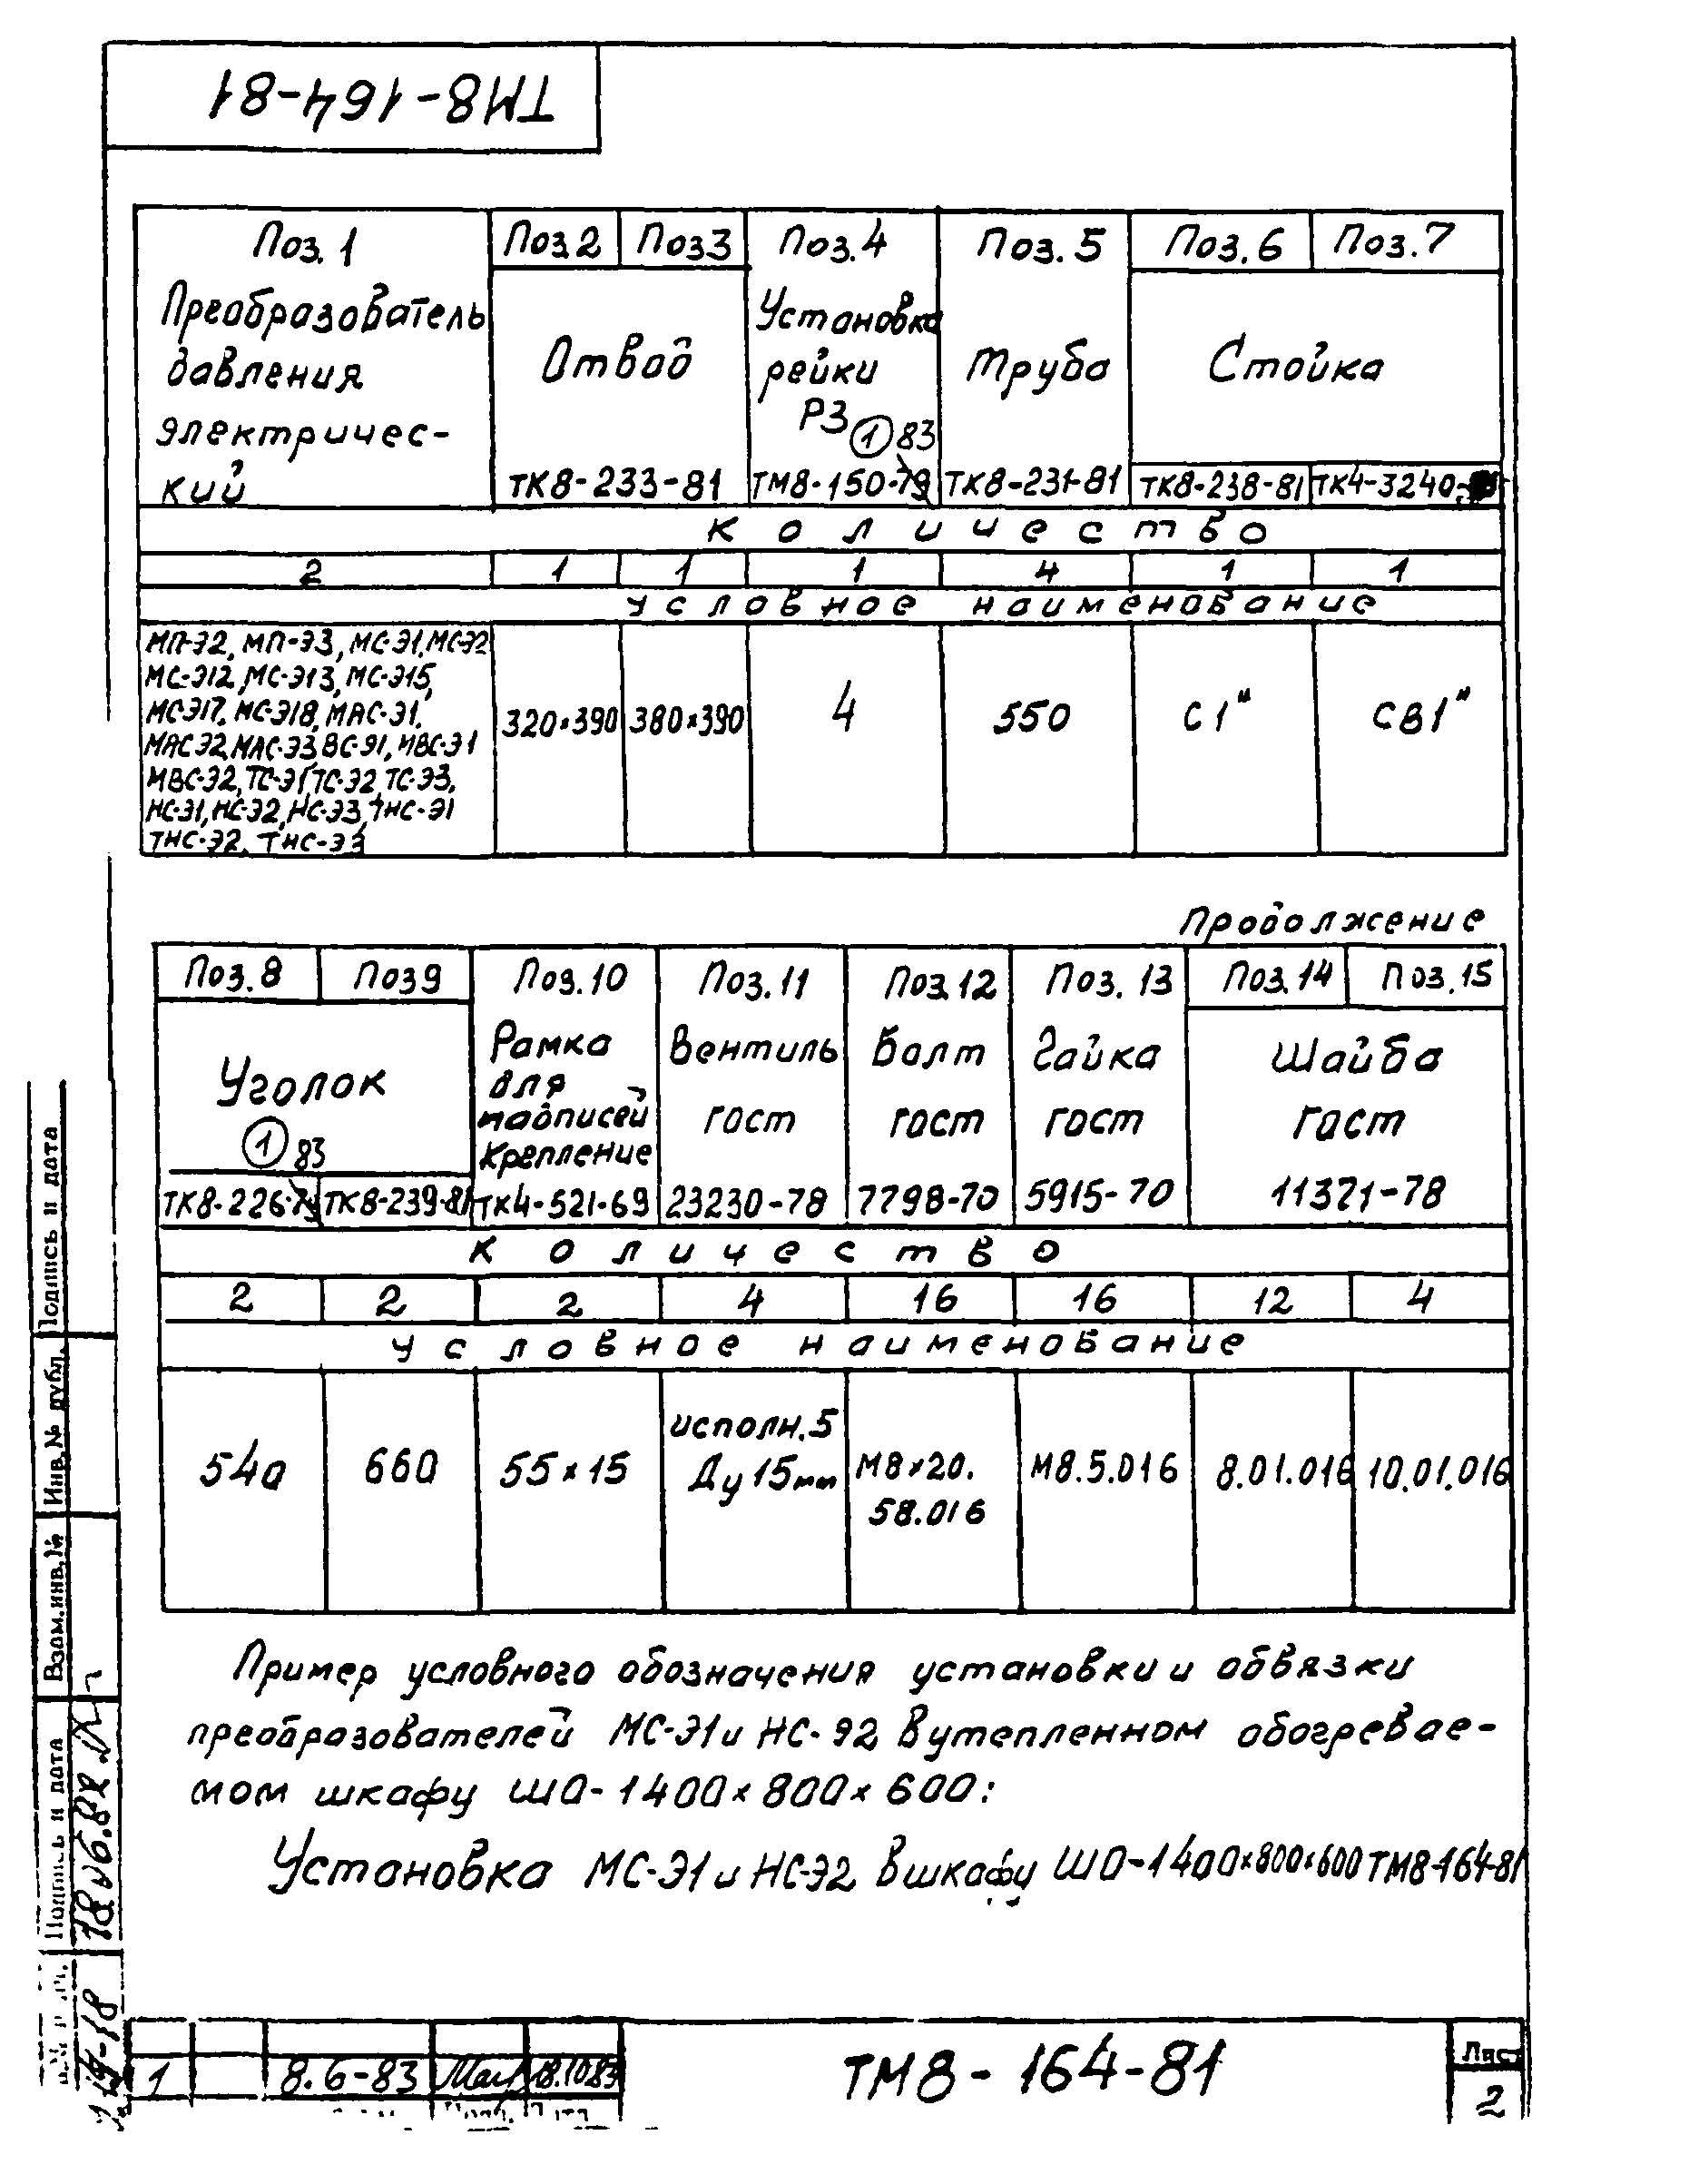 ТМ8-164-81
Поз.1 Поз.2 Поз3 Поз.4 Поз.5 Поз.6 Поз.7
Преобразователь
давления
электричес-
кий
Отвод
ТК8-233-81
Установка
рейки
РЗ
1 83
ТМ8-150-79
Труба
ТК8-231-81
Стойка
ТК8-238-81 ТК4-3240-
Количество
2 1 1 1 4 1 1
Условное наименование
МП-Э2, МП-Э3, МС-Э1, МС-Э2
МС-Э12, МС-Э13, МС-Э15,
МС-Э17, МС-Э18, МАС-Э1,
МАСЭ2, МАС-Э3, ВС-Э1, МВС-Э1
МВС-Э2, ТС-Э1, ТС-Э2, ТС-Э3,
НС-Э1, НС-Э2, НС-Э3, ТНС-Э1
ТНС-Э2, ТНС-Э3
320×390 380×390 4 550 С1" СВ1"
Продолжение
Поз.8 Поз9 Поз.10 Поз.11 Поз.12 Поз.13 Поз.14 Поз.15
Уголок
1 83
ТК8-226-79 ТК8-239-81
Рамка
для
надписей
крепление
ТК4-521-69
Вентиль
ГОСТ
23230-78
Болт
ГОСТ
7798-70
Гайка
ГОСТ
5915-70
Шайба
ГОСТ
11371-78
Количество
2 2 2 4 16 16 12 4
Условное наименование
54а 660 55×15
исполн.5
Ду15мм
М8×20.
58.016
М8.5.016 8.01.016 10.01.016
Пример условного обозначения установки и обвязки
преобразователей МС-Э1 и НС-Э2 в утепленном обогревае-
мом шкафу ШО-1400×800×600:
Установка МС-Э1 и НС-Э2 в шкафу ШО-1400×800×600 ТМ8-164-81
Подпись и дата
Инв.№ дубл.
Взам.инв.№
Подпись и дата
1 8.6-83 18.10.83
ТМ8-164-81
Лист
2